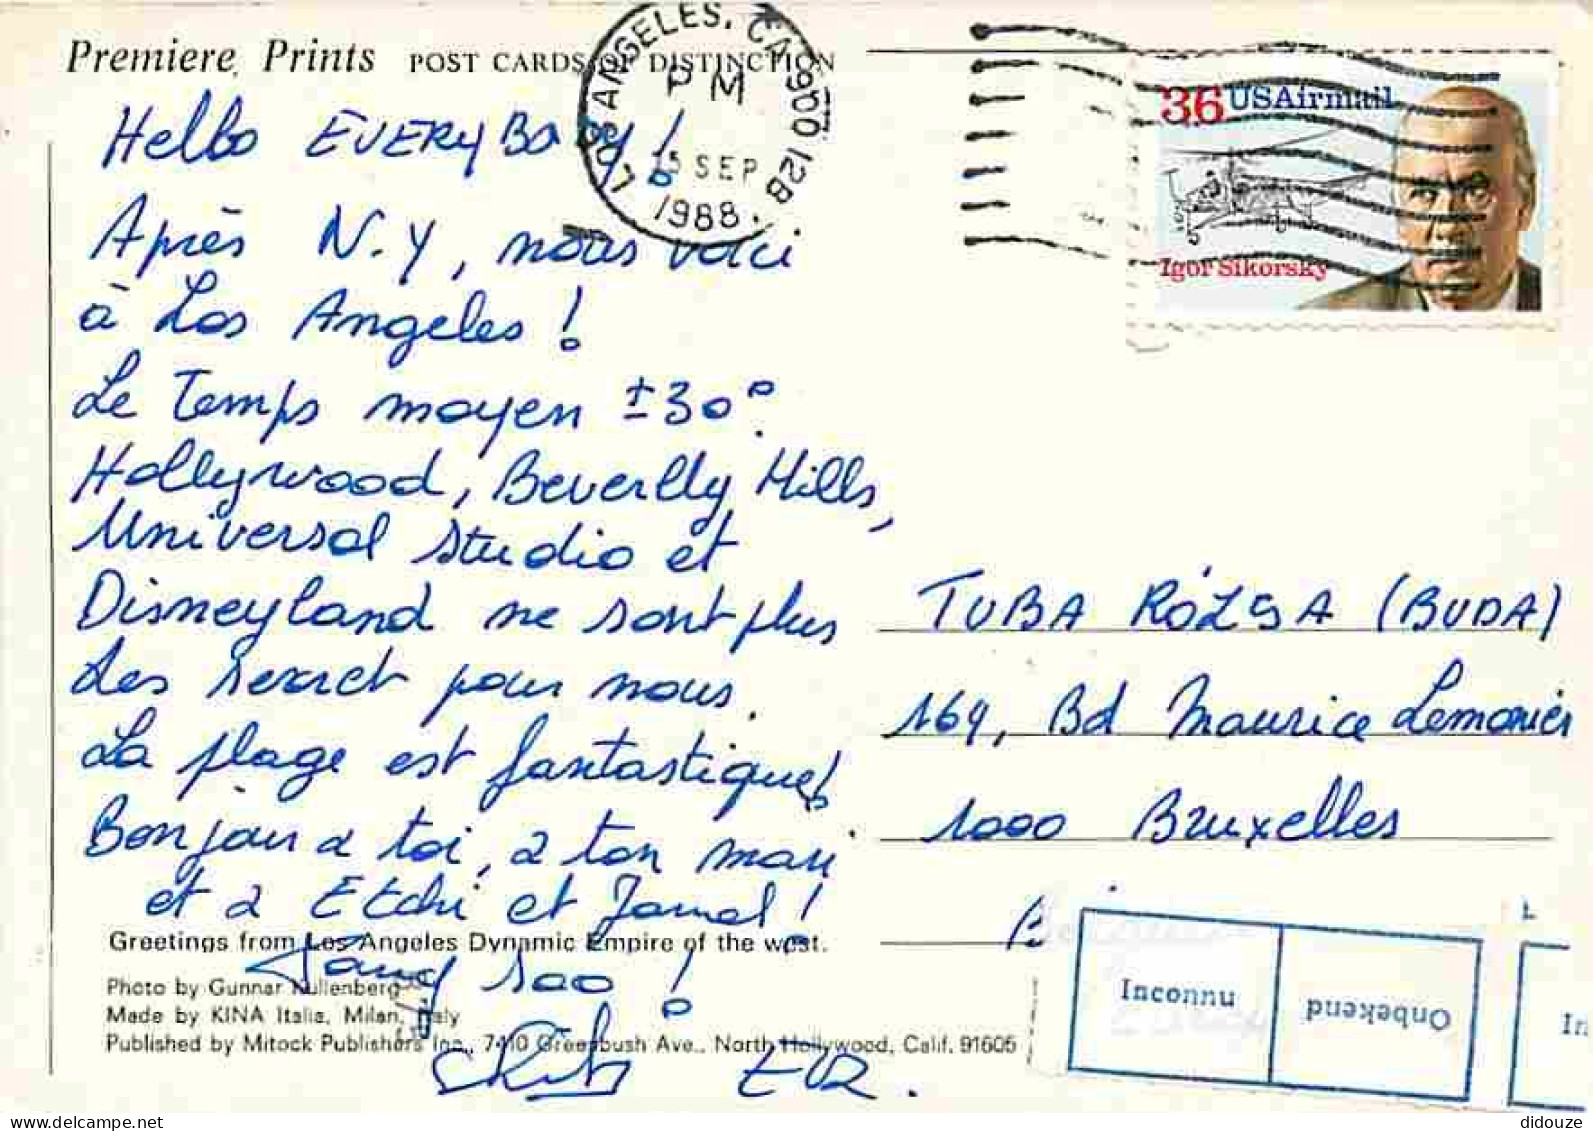 Premiere Prints POST CARDS OF DISTINCTION
LOS ANGELES, CA 900 12B
PM
15 SEP
1988
36 USAirmail
Igor Sikorsky
Hello EVERYBODY!
Après N.Y, nous voici
à Los Angeles!
Le Temps moyen ±30°.
Hollywood, Beverlly Hills,
Universal studio et
Disneyland ne sont plus
des secret pour nous.
La plage est fantastique!
Bonjour a toi, a ton mari
et a Etchi et Jamal!
TUBA RÓZSA (BUDA)
169, Bd Maurice Lemonier
1000 Bruxelles
B
Greetings from Los Angeles Dynamic Empire of the west.
soo!
Photo by Gunnar Kullenberg
Made by KINA Italia, Milan, Italy
Published by Mitock Publishers Inc., 7410 Greenbush Ave., North Hollywood, Calif. 91605
Inconnu
Onbekend
In
didouze